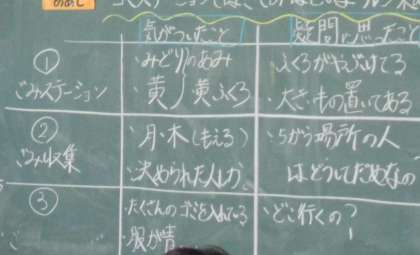 めあて
気がついたこと
疑問に思ったこと
①
ごみステーション
・みどりのあみ
・黄 黄ふくろ
・ふくろがやぶけてる
・大きいもの置いてある
②
ごみ収集
・月・木(もえる)
・決められた人しか
・ちがう場所の人
はどうしてだめなの
③
・たくさんのゴミを入れている
・服が
・どこ行くの?